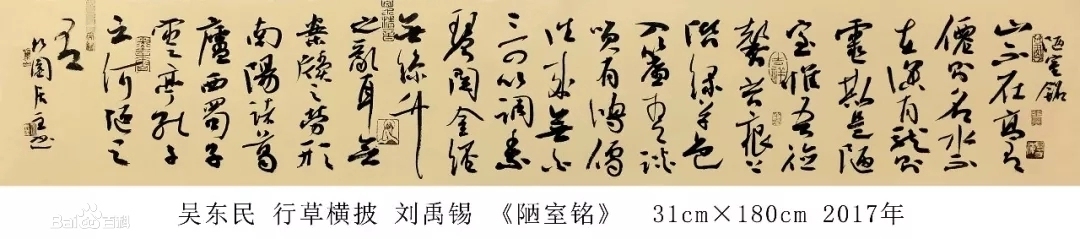 陋室銘
山不在高有
僊則名水不
在深有龍則
靈斯是陋
室惟吾德
馨苔痕上
階綠草色
入簾青談
笑有鴻儒
往來無白
丁可以調素
琴閱金經
無絲竹
之亂耳無
案牘之勞形
南陽諸葛
廬西蜀子
雲亭孔子
云何陋之
有
Bai百科
吴东民 行草横披 刘禹锡 《陋室铭》 31cm×180cm 2017年